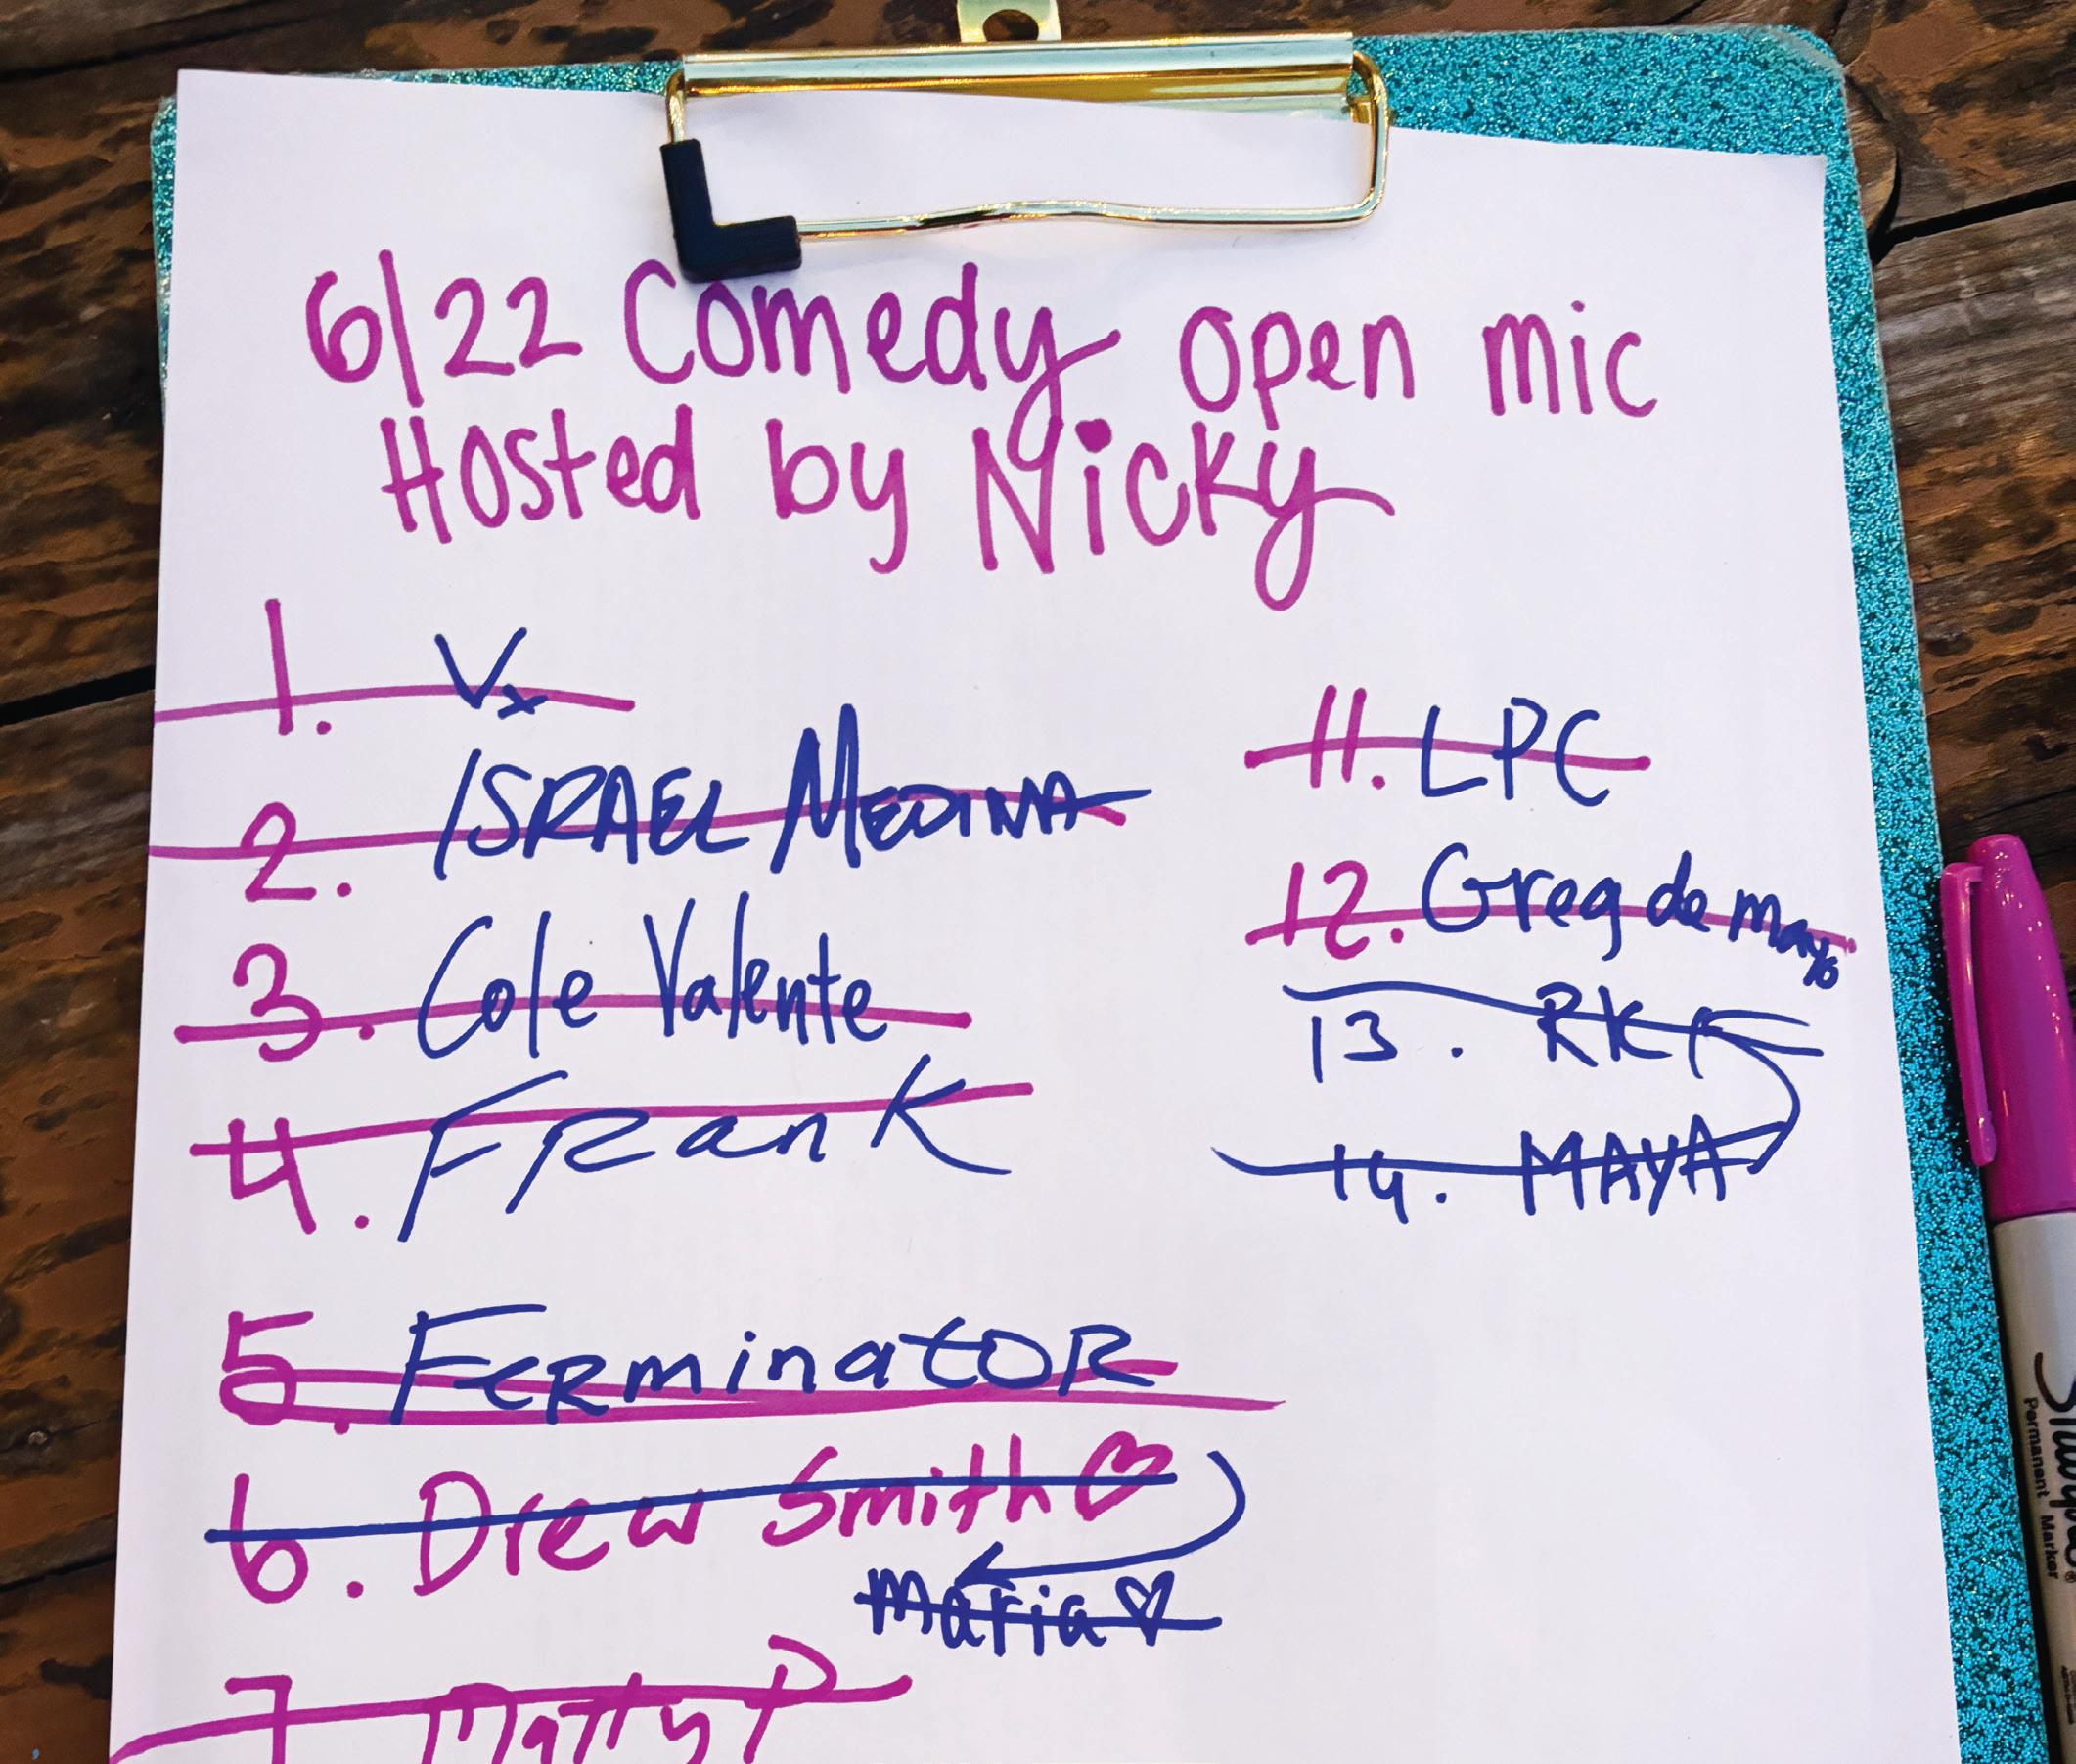 6/22 Comedy open mic
Hosted by Nicky
1. Vx
2. ISRAEL MEDINA
3. Cole Valente
4. FRanK
5. FERminatOR
6. Drew Smith♡
Maria♡
7. Matty P
11. LPC
12. Greg de mayo
13. RK
14. MAYA
Sharpie®
Permanent Marker